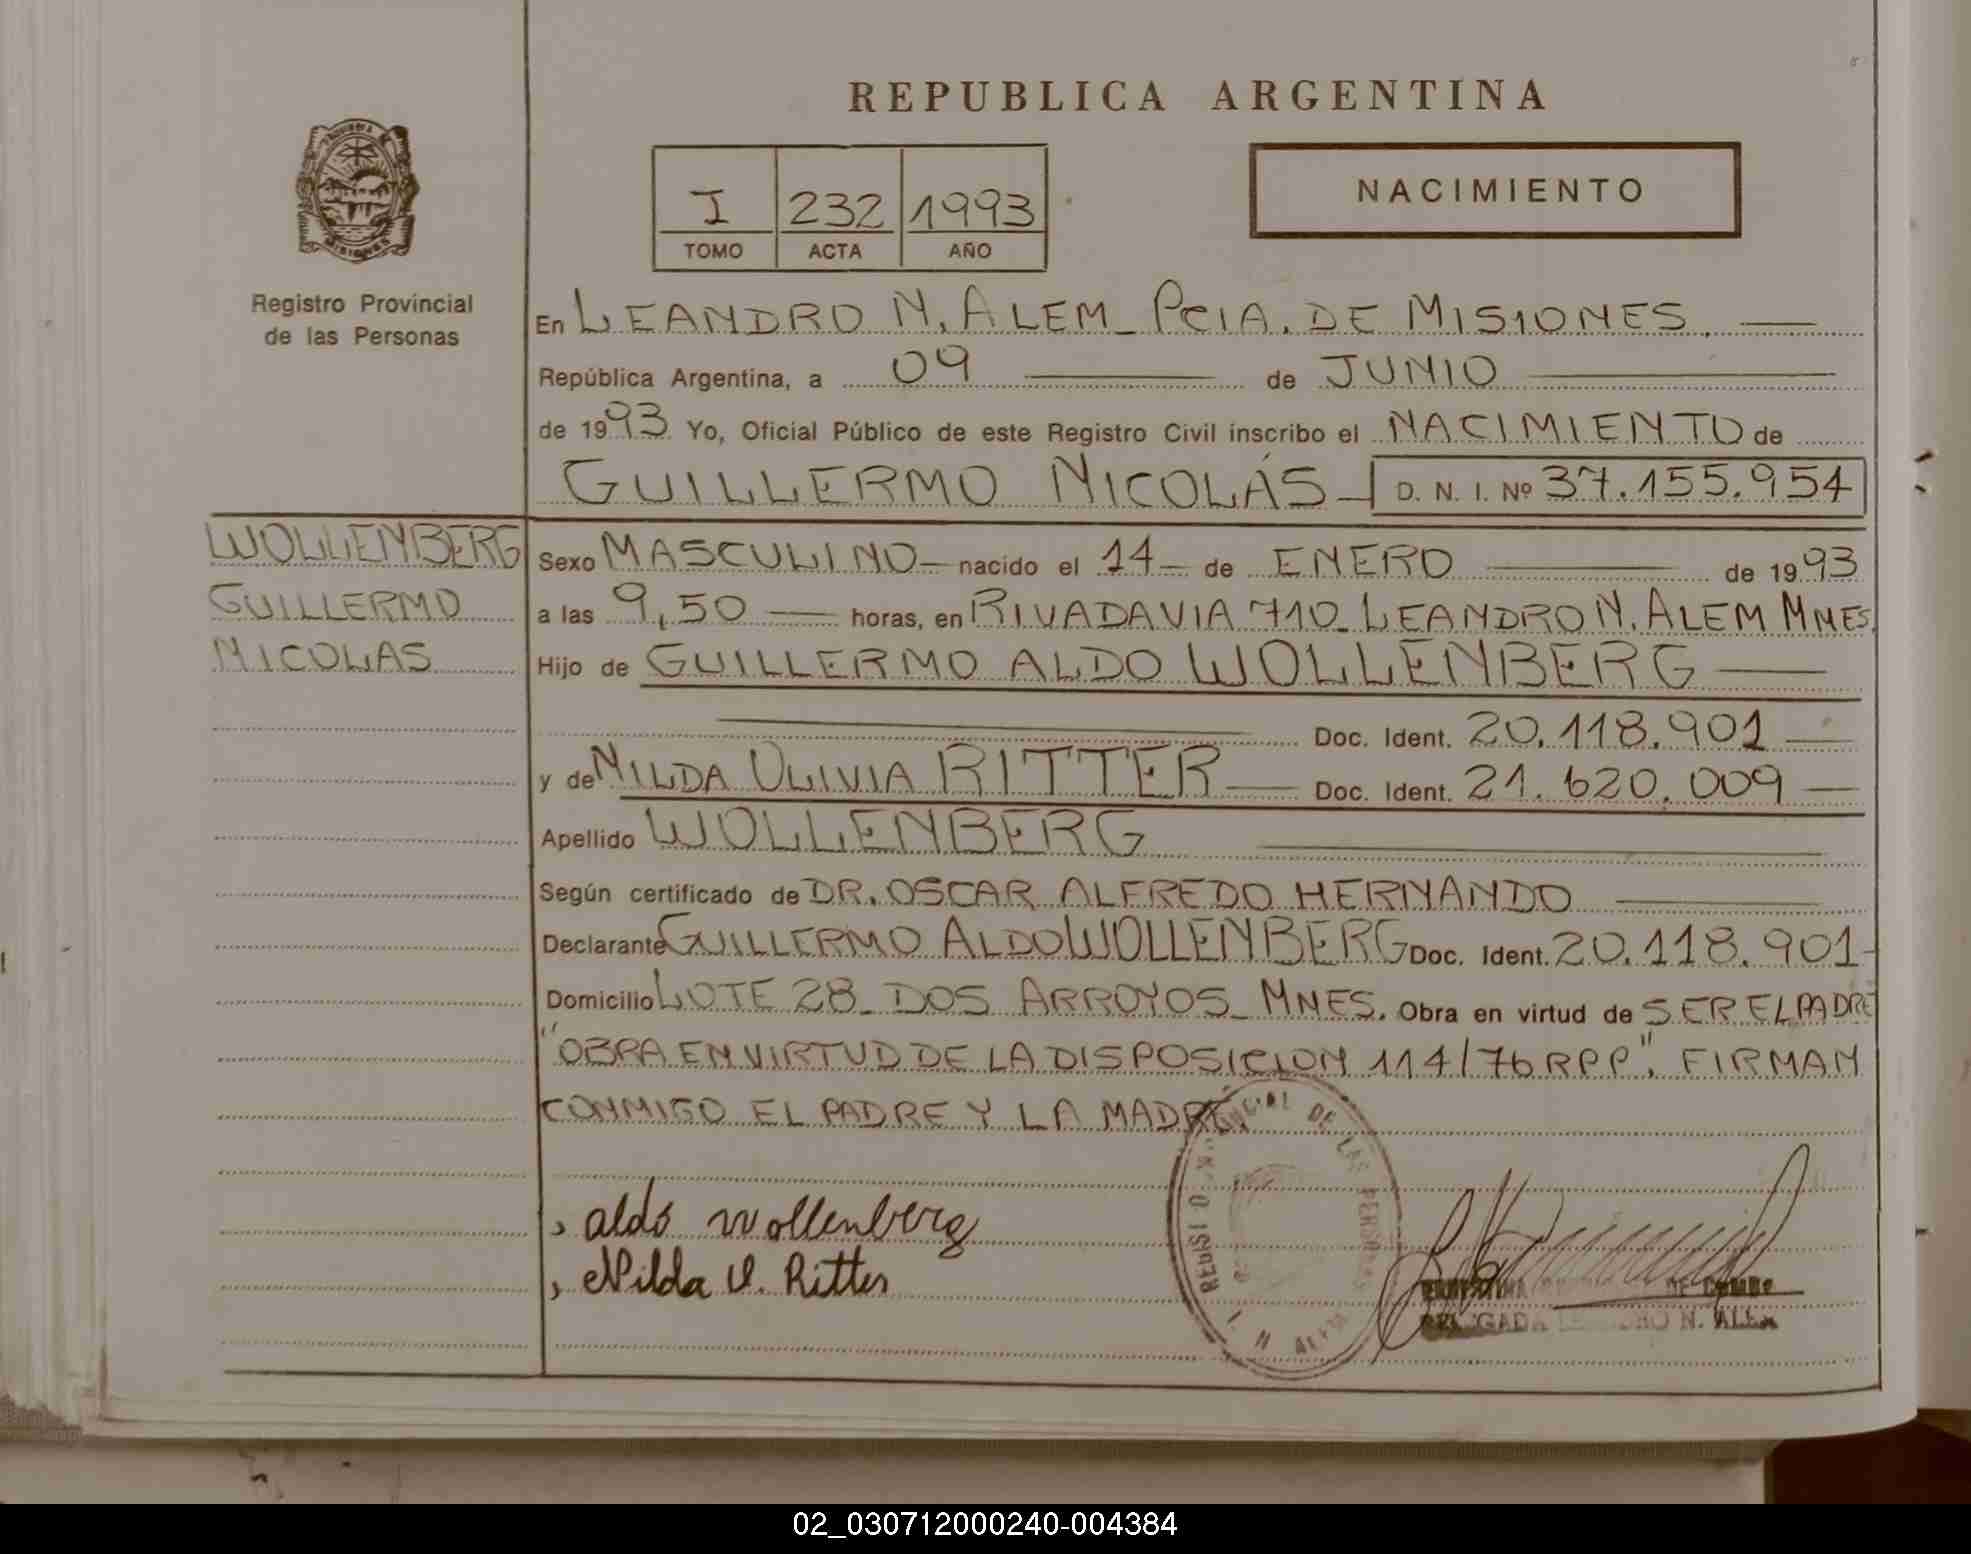 REPUBLICA ARGENTINA
I 232 1993
TOMO ACTA AÑO
NACIMIENTO
Registro Provincial
de las Personas
En LEANDRO N. ALEM - PCIA. DE MISIONES.
República Argentina, a 09 de JUNIO
de 1993 Yo, Oficial Público de este Registro Civil inscribo el NACIMIENTO de
GUILLERMO NICOLÁS D. N. I. Nº 37.155.954
WOLLENBERG
GUILLERMO
NICOLAS
Sexo MASCULINO - nacido el 14 - de ENERO de 1993
a las 9,50 horas, en RIVADAVIA 710 - LEANDRO N. ALEM MNES.
Hijo de GUILLERMO ALDO WOLLENBERG
Doc. Ident. 20.118.901
y de NILDA OLIVIA RITTER Doc. Ident. 21.620.009
Apellido WOLLENBERG
Según certificado de DR. OSCAR ALFREDO HERNANDO
Declarante GUILLERMO ALDO WOLLENBERG Doc. Ident. 20.118.901-
Domicilio LOTE 28 - DOS ARROYOS - MNES. Obra en virtud de SER EL PADRE
"OBRA EN VIRTUD DE LA DISPOSICION 114/76 RPP". FIRMAN
CONMIGO EL PADRE Y LA MADRE
Aldo Wollenberg
Nilda O. Ritter
DE LAS PERSONAS
L. N. ALEM
DELEGADA LEANDRO N. ALEM
02_030712000240-004384